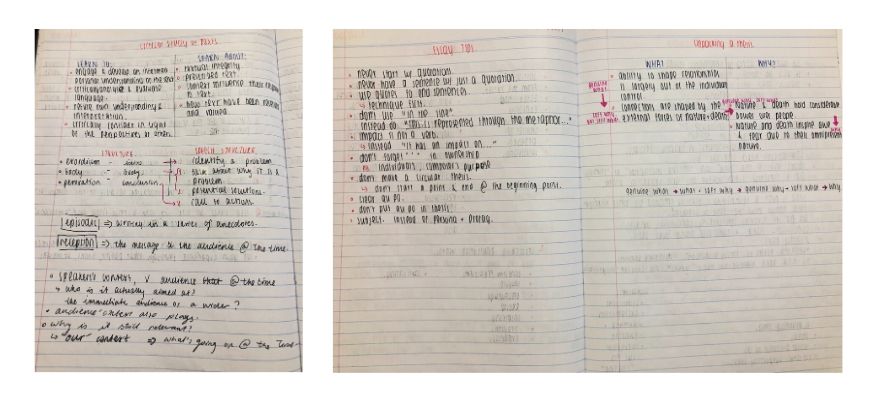 CRITICAL STUDY OF TEXTS
LEARN TO:
engage & develop an informed
personal understanding of the text
critically analyse & evaluate
language
refine own understanding &
interpretation
critically consider in light
of the perspectives of others.
LEARN ABOUT:
textual integrity
prescribed text
context influence their response
to text
how text have been received
and valued
STRUCTURE
exordium - intro
body - body
peroration - conclusion
SPEECH STRUCTURE
identify a problem
talk about why it is a
problem
potential solutions
call to action.
episodic ⇒ writing in a series of anecdotes.
reception ⇒ the message to the audience @ the time
speaker's context, v audience @ the time
↳ who is it actually aimed at?
the immediate audience or a wider?
audience context also plays.
why is it still relevant?
↳ "our" context ⇒ what's going on @ the time
ESSAY TIPS
never start w/ quotation.
never have a sentence w/ just a quotation.
use quotes to end sentences.
↳ technique first.
don't use "in the line"
instead do "this is represented through the metaphor..."
impact is not a verb.
↳ instead "it has an impact on..."
don't forget " ' " in ownership
↳ individual's, composer's purpose
don't make a circular thesis.
↳ don't start a point & end @ the beginning point.
clear
don't put in thesis
subject. instead of persona +
Unpacking a thesis.
WHAT
ability to shape relationships
is largely out of the individual
control
connections are shaped by the
external forces of nature + death
WHY?
nature & death hold considerable
power over people
nature and death inspire awe
& fear due to their omnipresent
nature.
genuine what → what + soft why → genuine why + soft what → why